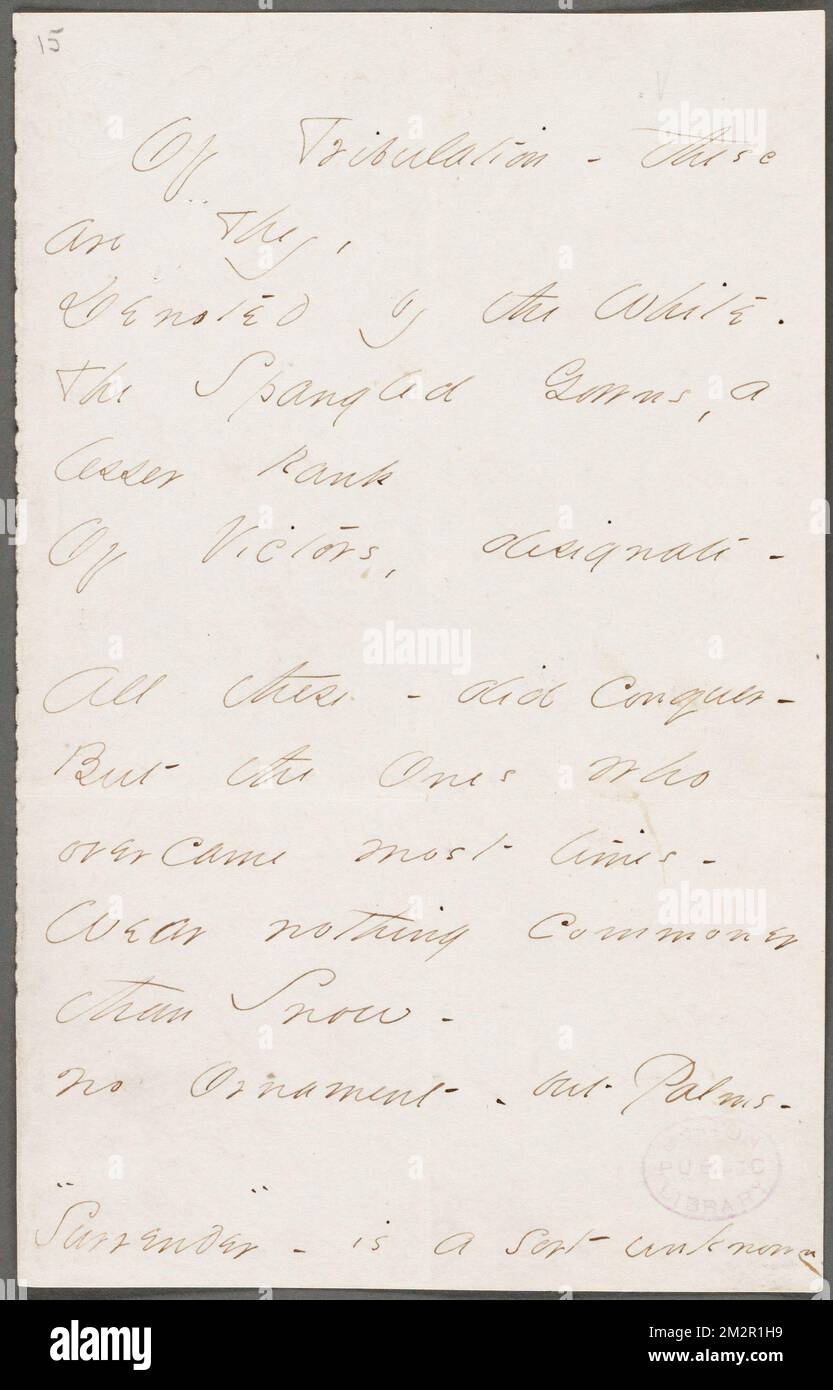 15
Of Tribulation - these
are They,
Denoted by the White.
The Spangled Gowns, a
lesser Rank
Of Victors, designate -
All these - did conquer -
But the Ones who
overcame most times -
Wear nothing commoner
than Snow -
no Ornament - but Palms -
"Surrender" - is a sort unknown
BOSTON
PUBLIC
LIBRARY
alamy
alamy
alamy
alamy
Image ID: 2M2R1H9
www.alamy.com